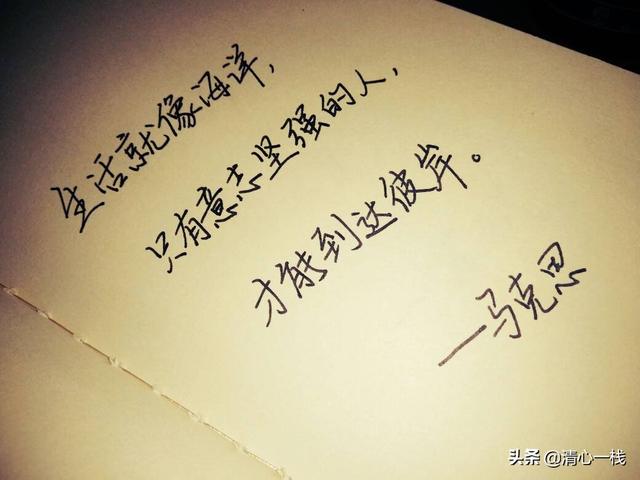 生活就像海洋，
只有意志坚强的人，
才能到达彼岸。
—马克思
头条 @清心一栈